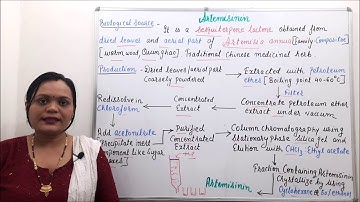 Artemisinin
Biological Source - It is a Sesquiterpene lactone obtained from
dried leaves and aerial part of Artemisia annua [Family-Compositae]
[wormwood, Quinghao] Traditional Chinese medicinal herb.
Production - Dried leaves/aerial part
Coarsely powdered
Extracted with Petroleum
ether [Boiling point 40-60°C]
Filter
Concentrate petroleum ether
Extract under vacuum
Concentrated
Extract
Redissolve in
Chloroform
Add acetonitrile
Precipitate inert
component like Sugar
waxes]
Purified
Concentrated
Extract
Column chromatography using
Stationary phase silica gel and
Elution with CHCl3: Ethyl acetate
Fraction Containing Artemisinin
Crystallize by using
Cyclohexane or 50% ethanol
Artemisinin